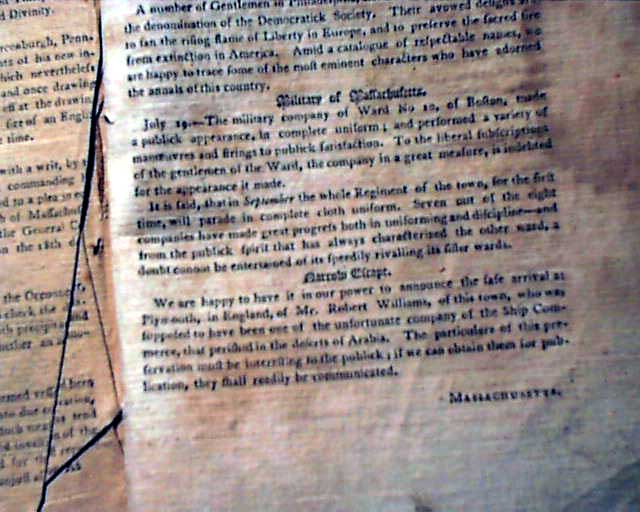 d Divinity.
ercesburgh, Penn.
nts of his new in-
hich nevertheless
and once drawing
est at the drawing
size of an English
time.
with a writ, by
commanding
ed to a plea in
h of Massachus
the General C
on the 18th d
the Oppouner,
check the
precipita
nother
ormed vessel been
into due
such we
d
A number of Gentlemen in Philadelphia,
the denomination of the Democratick Society. Their avowed designs are
to fan the rising flame of Liberty in Europe, and to preserve the sacred fire
from extinction in America. Amid a catalogue of respectable names, we
are happy to trace some of the most eminent characters who have adorned
the annals of this country.
Military of Massachusetts.
July 19.—The military company of Ward No 10, of Boston, made
a publick appearance, in complete uniform; and performed a variety of
manœuvres and firings to publick satisfaction. To the liberal subscriptions
of the gentlemen of the Ward, the company in a great measure, is indebted
for the appearance it made.
It is said, that in September the whole Regiment of the town, for the first
time, will parade in complete cloth uniform. Seven out of the eight
companies have made great progress both in uniforming and discipline—and
from the publick spirit that has always characterised the other ward, a
doubt cannot be entertained of its speedily rivalling its sister wards.
Narrow Escape.
We are happy to have it in our power to announce the safe arrival at
Plymouth, in England, of Mr. Robert Williams, of this town, who was
supposed to have been one of the unfortunate company of the Ship Com-
merce, that perished in the deserts of Arabia. The particulars of this pre-
servation must be interesting to the publick; if we can obtain them for pub-
lication, they shall readily be communicated.
MASSACHUSETTS.